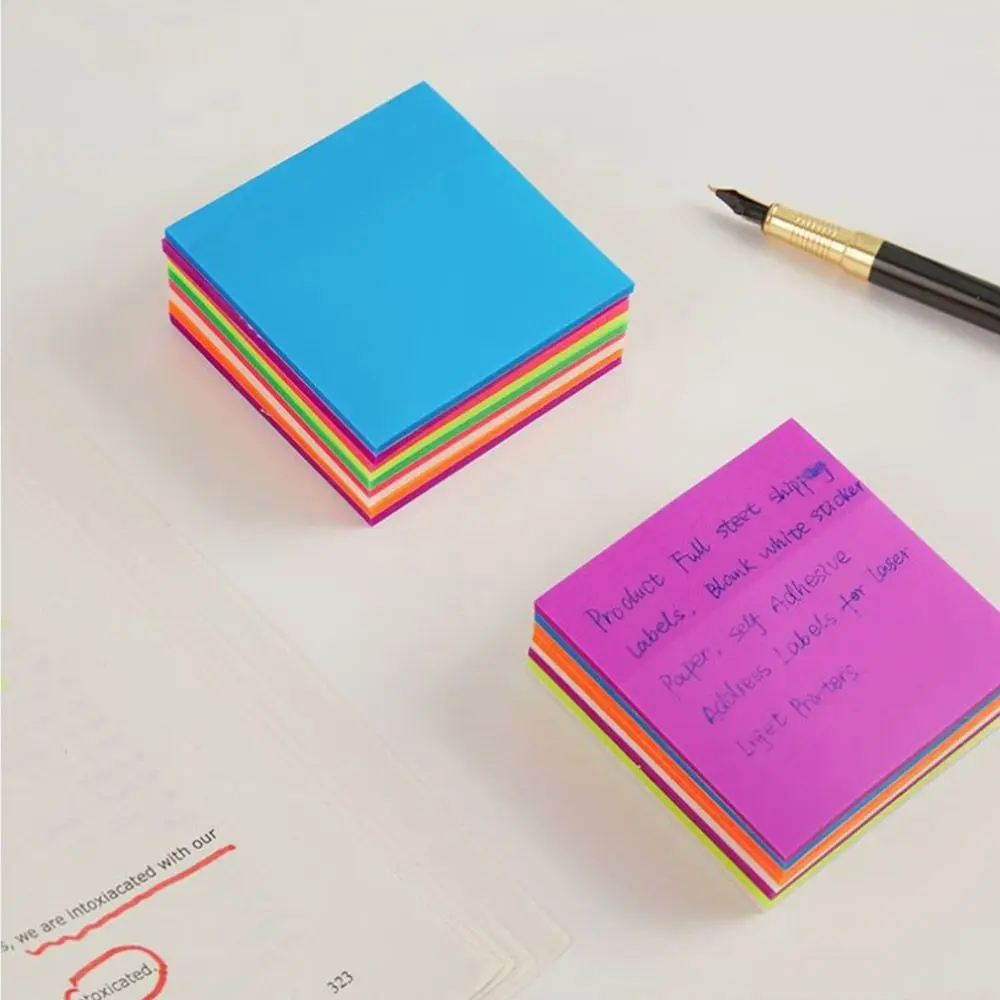 Product Full steet shipping
labels, Blank white sticker
Paper, self Adhesive
Address Labels for Laser
Injet Printers
s, we are intoxiacated with our
toxicated.
323